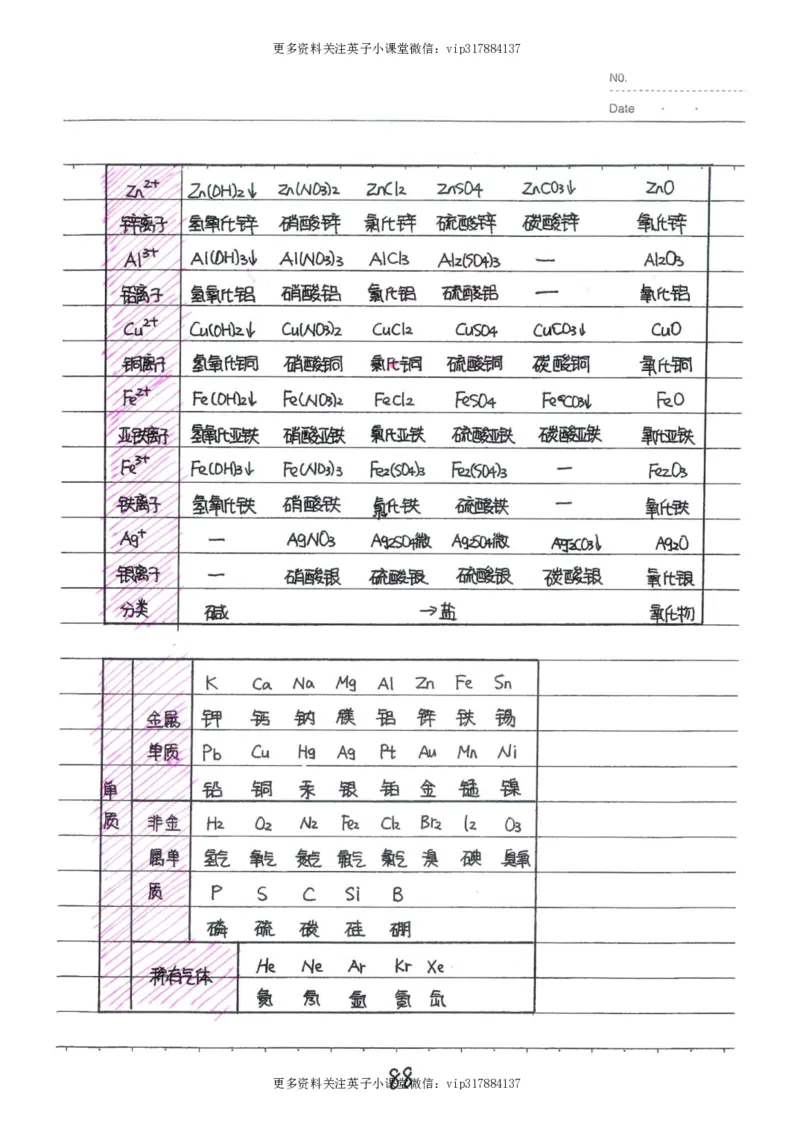 更多资料关注英子小课堂微信：vip317884137
NO.
Date
Zn²⁺ Zn(OH)₂↓ Zn(NO₃)₂ ZnCl₂ ZnSO₄ ZnCO₃↓ ZnO
锌离子 氢氧化锌 硝酸锌 氯化锌 硫酸锌 碳酸锌 氧化锌
Al³⁺ Al(OH)₃↓ Al(NO₃)₃ AlCl₃ Al₂(SO₄)₃ — Al₂O₃
铝离子 氢氧化铝 硝酸铝 氯化铝 硫酸铝 — 氧化铝
Cu²⁺ Cu(OH)₂↓ Cu(NO₃)₂ CuCl₂ CuSO₄ CuCO₃↓ CuO
铜离子 氢氧化铜 硝酸铜 氯化铜 硫酸铜 碳酸铜 氧化铜
Fe²⁺ Fe(OH)₂↓ Fe(NO₃)₂ FeCl₂ FeSO₄ FeCO₃↓ FeO
亚铁离子 氢氧化亚铁 硝酸亚铁 氯化亚铁 硫酸亚铁 碳酸亚铁 氧化亚铁
Fe³⁺ Fe(OH)₃↓ Fe(NO₃)₃ Fe₂(SO₄)₃ Fe₂(SO₄)₃ — Fe₂O₃
铁离子 氢氧化铁 硝酸铁 氯化铁 硫酸铁 — 氧化铁
Ag⁺ — AgNO₃ Ag₂SO₄微 Ag₂SO₄微 Ag₂CO₃↓ Ag₂O
银离子 — 硝酸银 硫酸银 硫酸银 碳酸银 氧化银
分类 碱 →盐 氧化物
K Ca Na Mg Al Zn Fe Sn
金属 钾 钙 钠 镁 铝 锌 铁 锡
单质 Pb Cu Hg Ag Pt Au Mn Ni
单 铅 铜 汞 银 铂 金 锰 镍
质 非金 H₂ O₂ N₂ Fe₂ Cl₂ Br₂ I₂ O₃
属单 氢气 氧气 氮气 氟气 氯气 溴 碘 臭氧
质 P S C Si B
磷 硫 碳 硅 硼
稀有气体 He Ne Ar Kr Xe
氦 氖 氩 氪 氙
88
更多资料关注英子小课堂微信：vip317884137